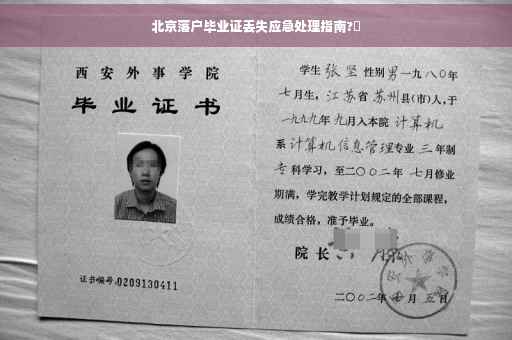 北京落户毕业证丢失应急处理指南?
西安外事学院
毕业证书
证书编号:0209130411
学生 张坚 性别 男 一九八〇年
七月生, 江苏省 苏州县(市)人,于
一九九九年 九月入本院 计算机
系 计算机信息管理专业 三 年制
专科学习,至二〇〇二年 七月修业
期满,学完教学计划规定的全部课程,
成绩合格,准予毕业。
院长
二〇〇二年 月 五日